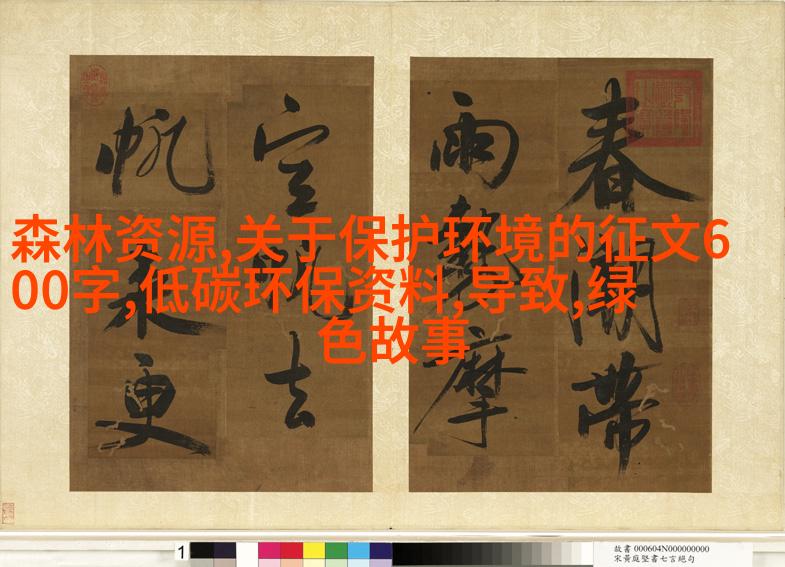 森林资源,关于保护环境的征文6
00字,低碳环保资料,导致,绿
色故事
春湖帶
雨 摩
空 去
帆 更
1
故書 000604N000000000
宋黃庭堅書七言絕句